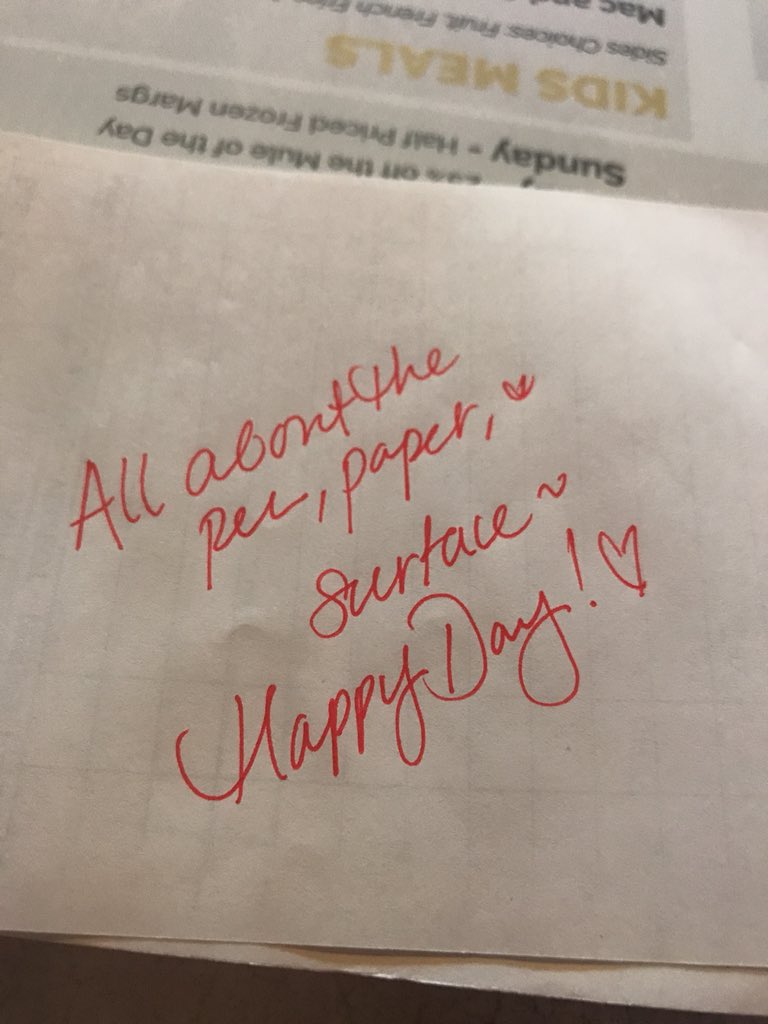 Mac and
Sides Choices: Fruit, French Fries
KIDS MEALS
Sunday - Half Priced Frozen Margs
off the Mule of the Day
All about the
pen, paper, &
surface ~
Happy Day! ♡